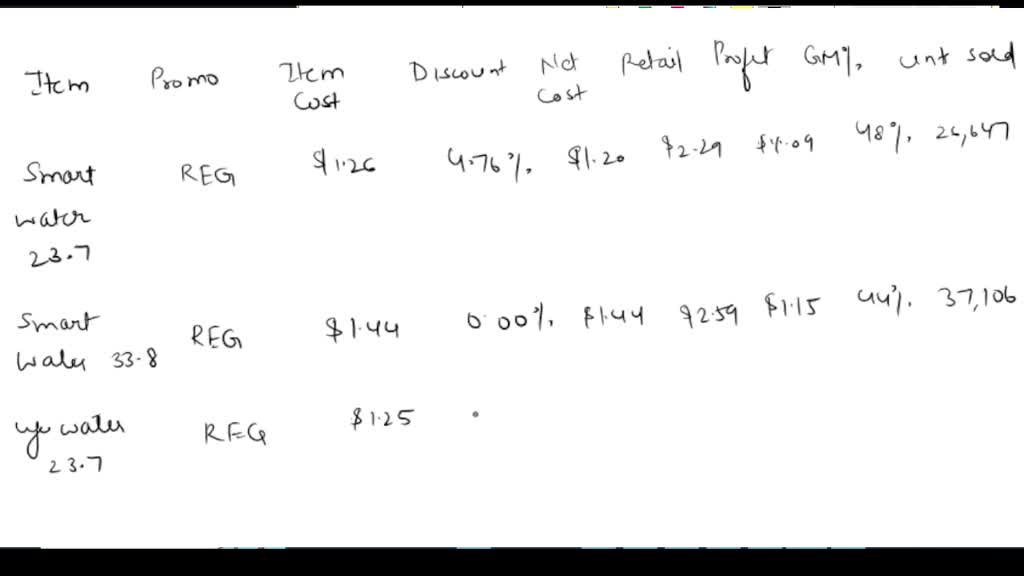 Item Promo Item Cost Discount Net Cost Retail Profit GM% unt sold
Smart water 23.7 REG $1.26 4.76% $1.20 $2.29 48% 26,647
Smart Water 33.8 REG $1.44 0.00% $1.44 $2.59 $1.15 44% 37,106
water 23.7 REG $1.25